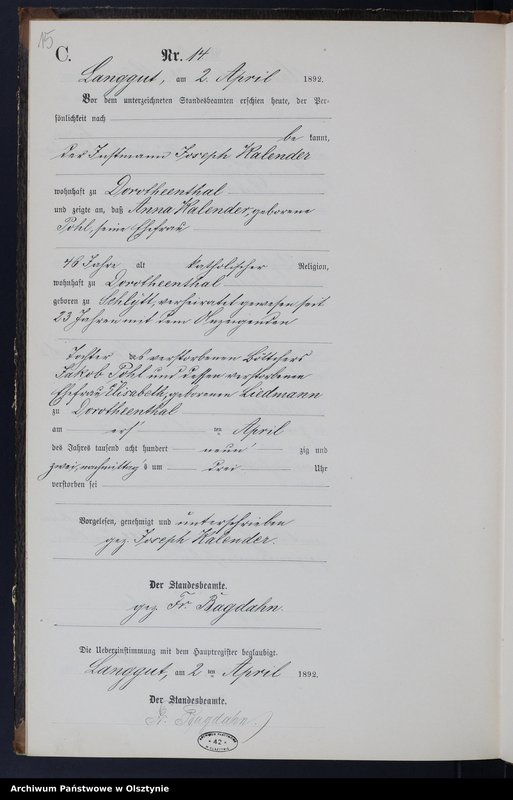 15
C. Nr. 14
Langgut, am 2 April 1892.
Vor dem unterzeichneten Standesbeamten erschien heute, der Per-
sönlichkeit nach
be kannt,
der Instmann Joseph Kalender
wohnhaft zu Dorotheenthal
und zeigte an, daß Anna Kalender, geborene
Pohl, seine Ehefrau
46 Jahre alt katholischer Religion,
wohnhaft zu Dorotheenthal
geboren zu Schlÿtt, verheiratet gewesen seit
23 Jahren mit dem Anzeigenden
Tochter des verstorbenen Böttchers
Jakob Pohl und dessen verstorbenen
Ehefrau Elisabeth, geborenen Liedmann
zu Dorotheenthal
am ers ten April
des Jahres tausend acht hundert neun zig und
zwei, nachmittag s um drei Uhr
verstorben sei
Vorgelesen, genehmigt und unterschrieben
gez. Joseph Kalender.
Der Standesbeamte.
gez. Fr. Bagdahn.
Die Uebereinstimmung mit dem Hauptregister beglaubigt.
Langgut, am 2 ten April 1892.
Der Standesbeamte.
Fr. Bagdahn.
ARCHIWUM PAŃSTWOWE
42
W OLSZTYNIE
Archiwum Państwowe w Olsztynie